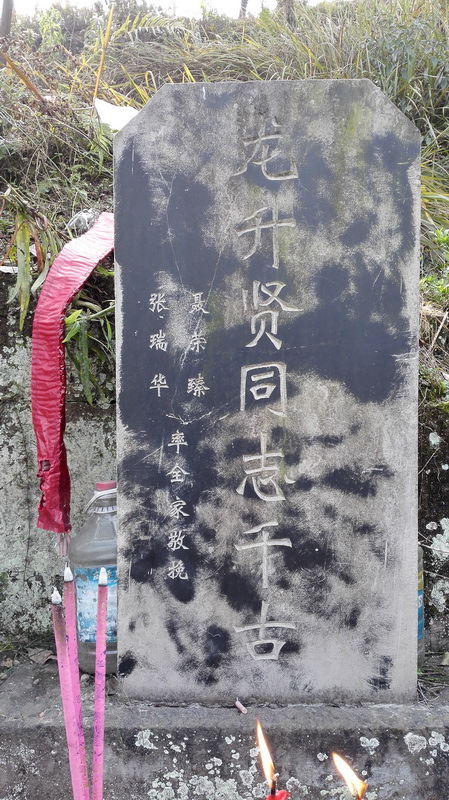 龙升贤同志千古
聂荣臻
张瑞华
率全家敬挽